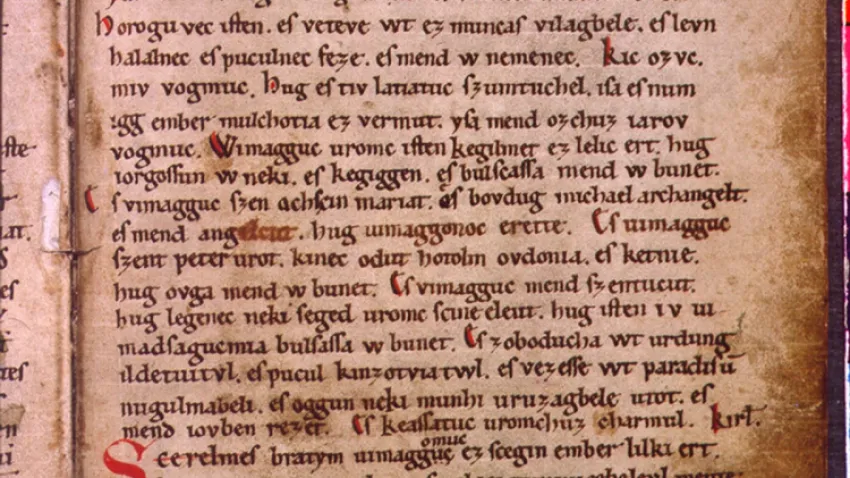 horogu vec isten. es veteve wt ez muncas vilagbele. es levn
halalnec es puculnec feze. es mend w nemenec. Kic ozvc.
miv vogmuc. Hug es tiv latiatuc szumtuchel. isa es num
igg ember mulchotia ez vermut. ysa mend ozchuz iarov
vogmuc. Wimagguc uromc isten kegilmet ez lelic ert. hug
iorgossun w neki. es kegiggen. es bulscassa mend w bunet.
Es vimagguc szen achscin mariat. es bovdug michael archangelt.
es mend angelcut. hug uimaggonoc erette. Es uimagguc
szent peter urot. kinec odut hotolm ovdonia. es ketnie.
hug ovga mend w bunet. Es vimagguc mend szentucut.
hug legenec neki seged uromc scine eleut. hug isten iv ui
madsagucmia bulsassa w bunet. Es zoboducha wt urdung
ildetuitvl. es pucul kinzotviatwl. es vezesse wt paradisū
nugulmabeli. es oggun neki munhi uruzagbele utot. es
mend iovben rezet. Es keassatuc uromchuz charmul. kirl.
omuc
Scerelmes bratym uimagguc ez scegin ember lilki ert.